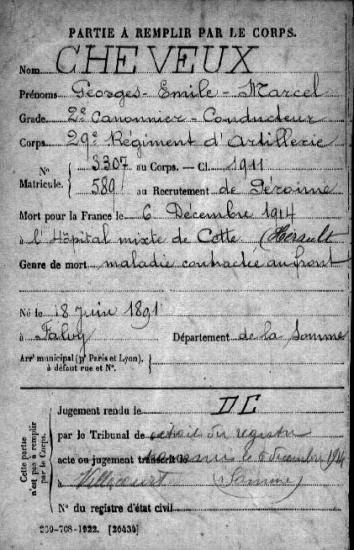 PARTIE À REMPLIR PAR LE CORPS.
Nom CHEVEUX
Prénoms Georges - Emile - Marcel
Grade 2e Canonnier - Conducteur
Corps 29e Régiment d'Artillerie
N° 3307 au Corps. — Cl. 1911
Matricule. 589 au Recrutement de Péronne
Mort pour la France le 6 Décembre 1914
à l'Hôpital mixte de Cette (Hérault
Genre de mort maladie contractée au front
Né le 18 Juin 1891
à Falvy Département de la Somme
Arrt municipal (pr Paris et Lyon),
à défaut rue et N°.
Cette partie
n'est pas à remplir
par le Corps.
Jugement rendu le DC
par le Tribunal de extrait du registre
acte ou jugement transcrit le le 6 Décembre 1914
à Villecourt (Somme)
N° du registre d'état civil
269-708-1922. [26434]